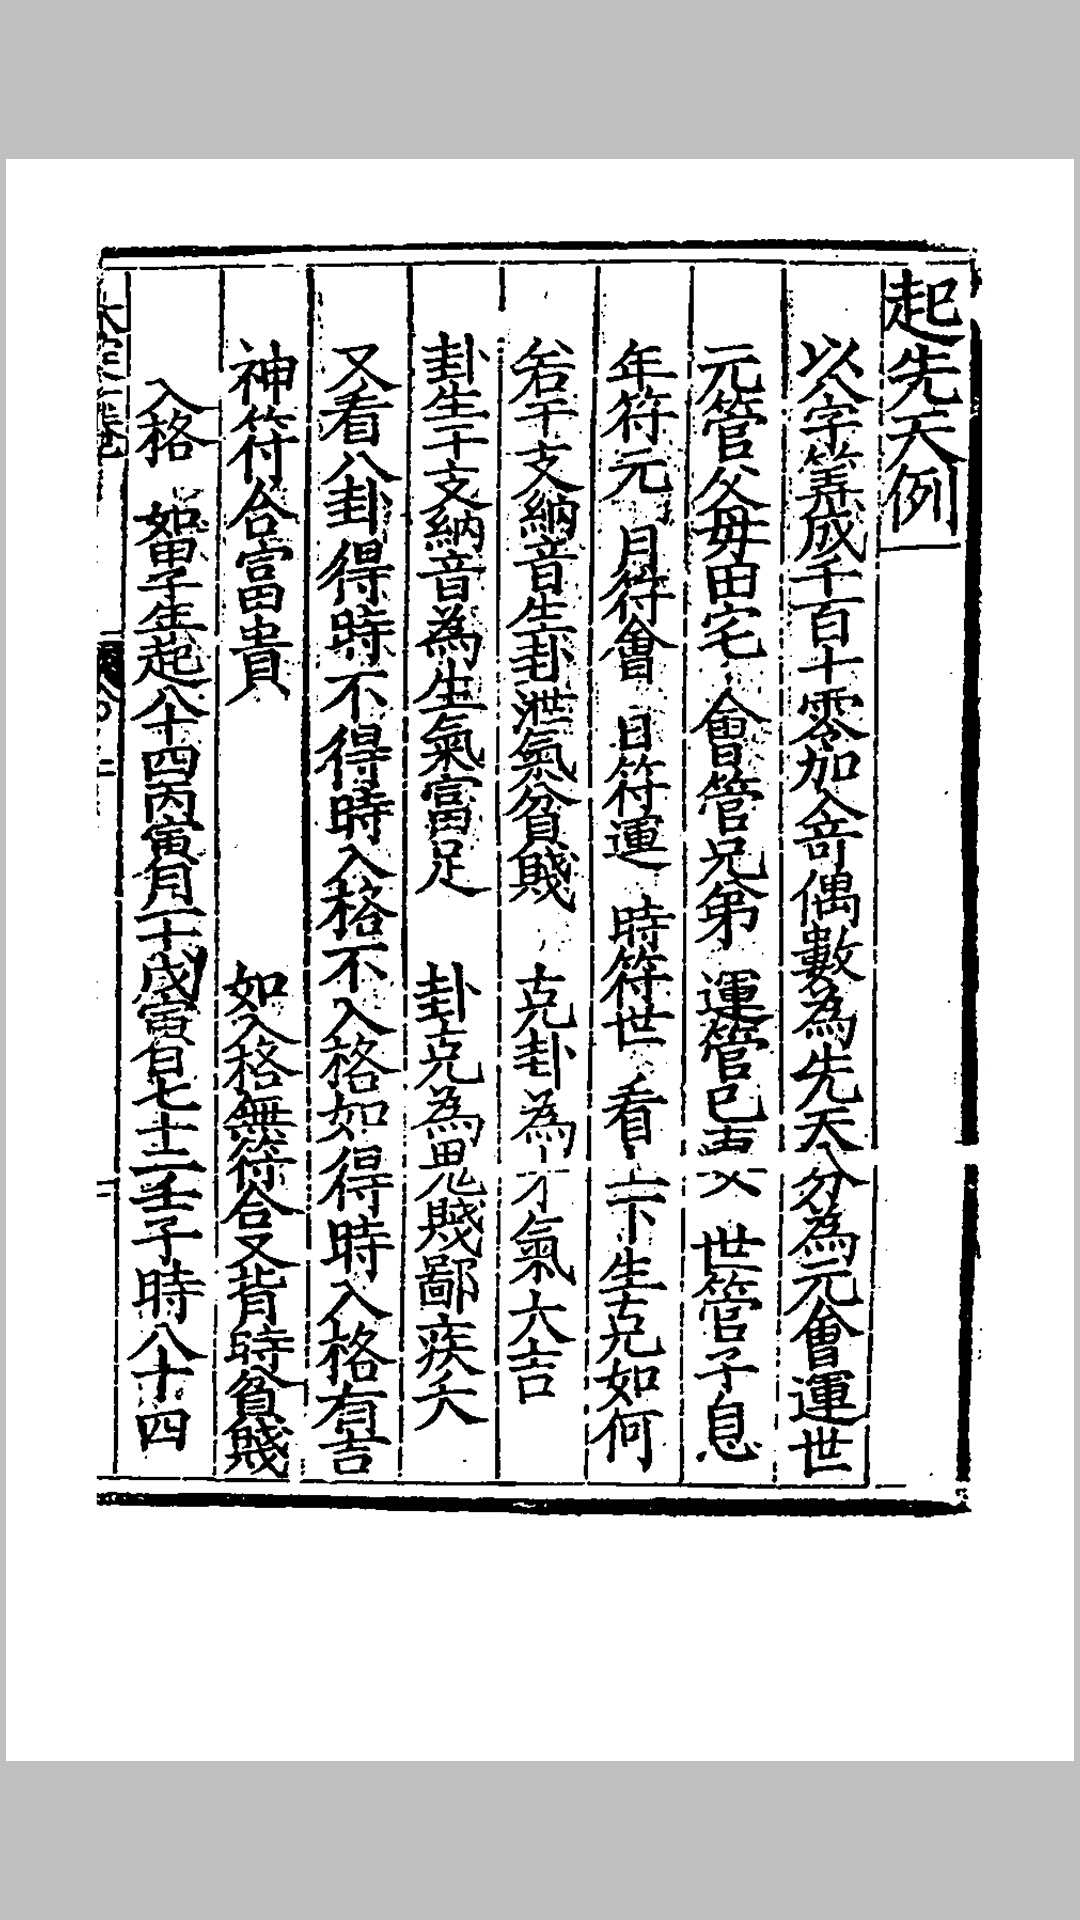 起先天例
以八字筭成千百十零加合竒偶數為先天分為元會運世
元管父母田宅 會管兄弟 運管已妻 世管子息
年符元 月符會 日符運 時符世 看上下生克如何
若干支納音生卦泄氣貧賤 克卦為才氣大吉
卦生干支納音為生氣富足 卦克為鬼賤鄙疾夭
又看八卦得時不得時入格不入格如得時入格有吉
神符合富貴 如入格無符合又背時貧賤
入格 如甲子年起八十四丙寅月一十戊寅日七十二壬子時八十四